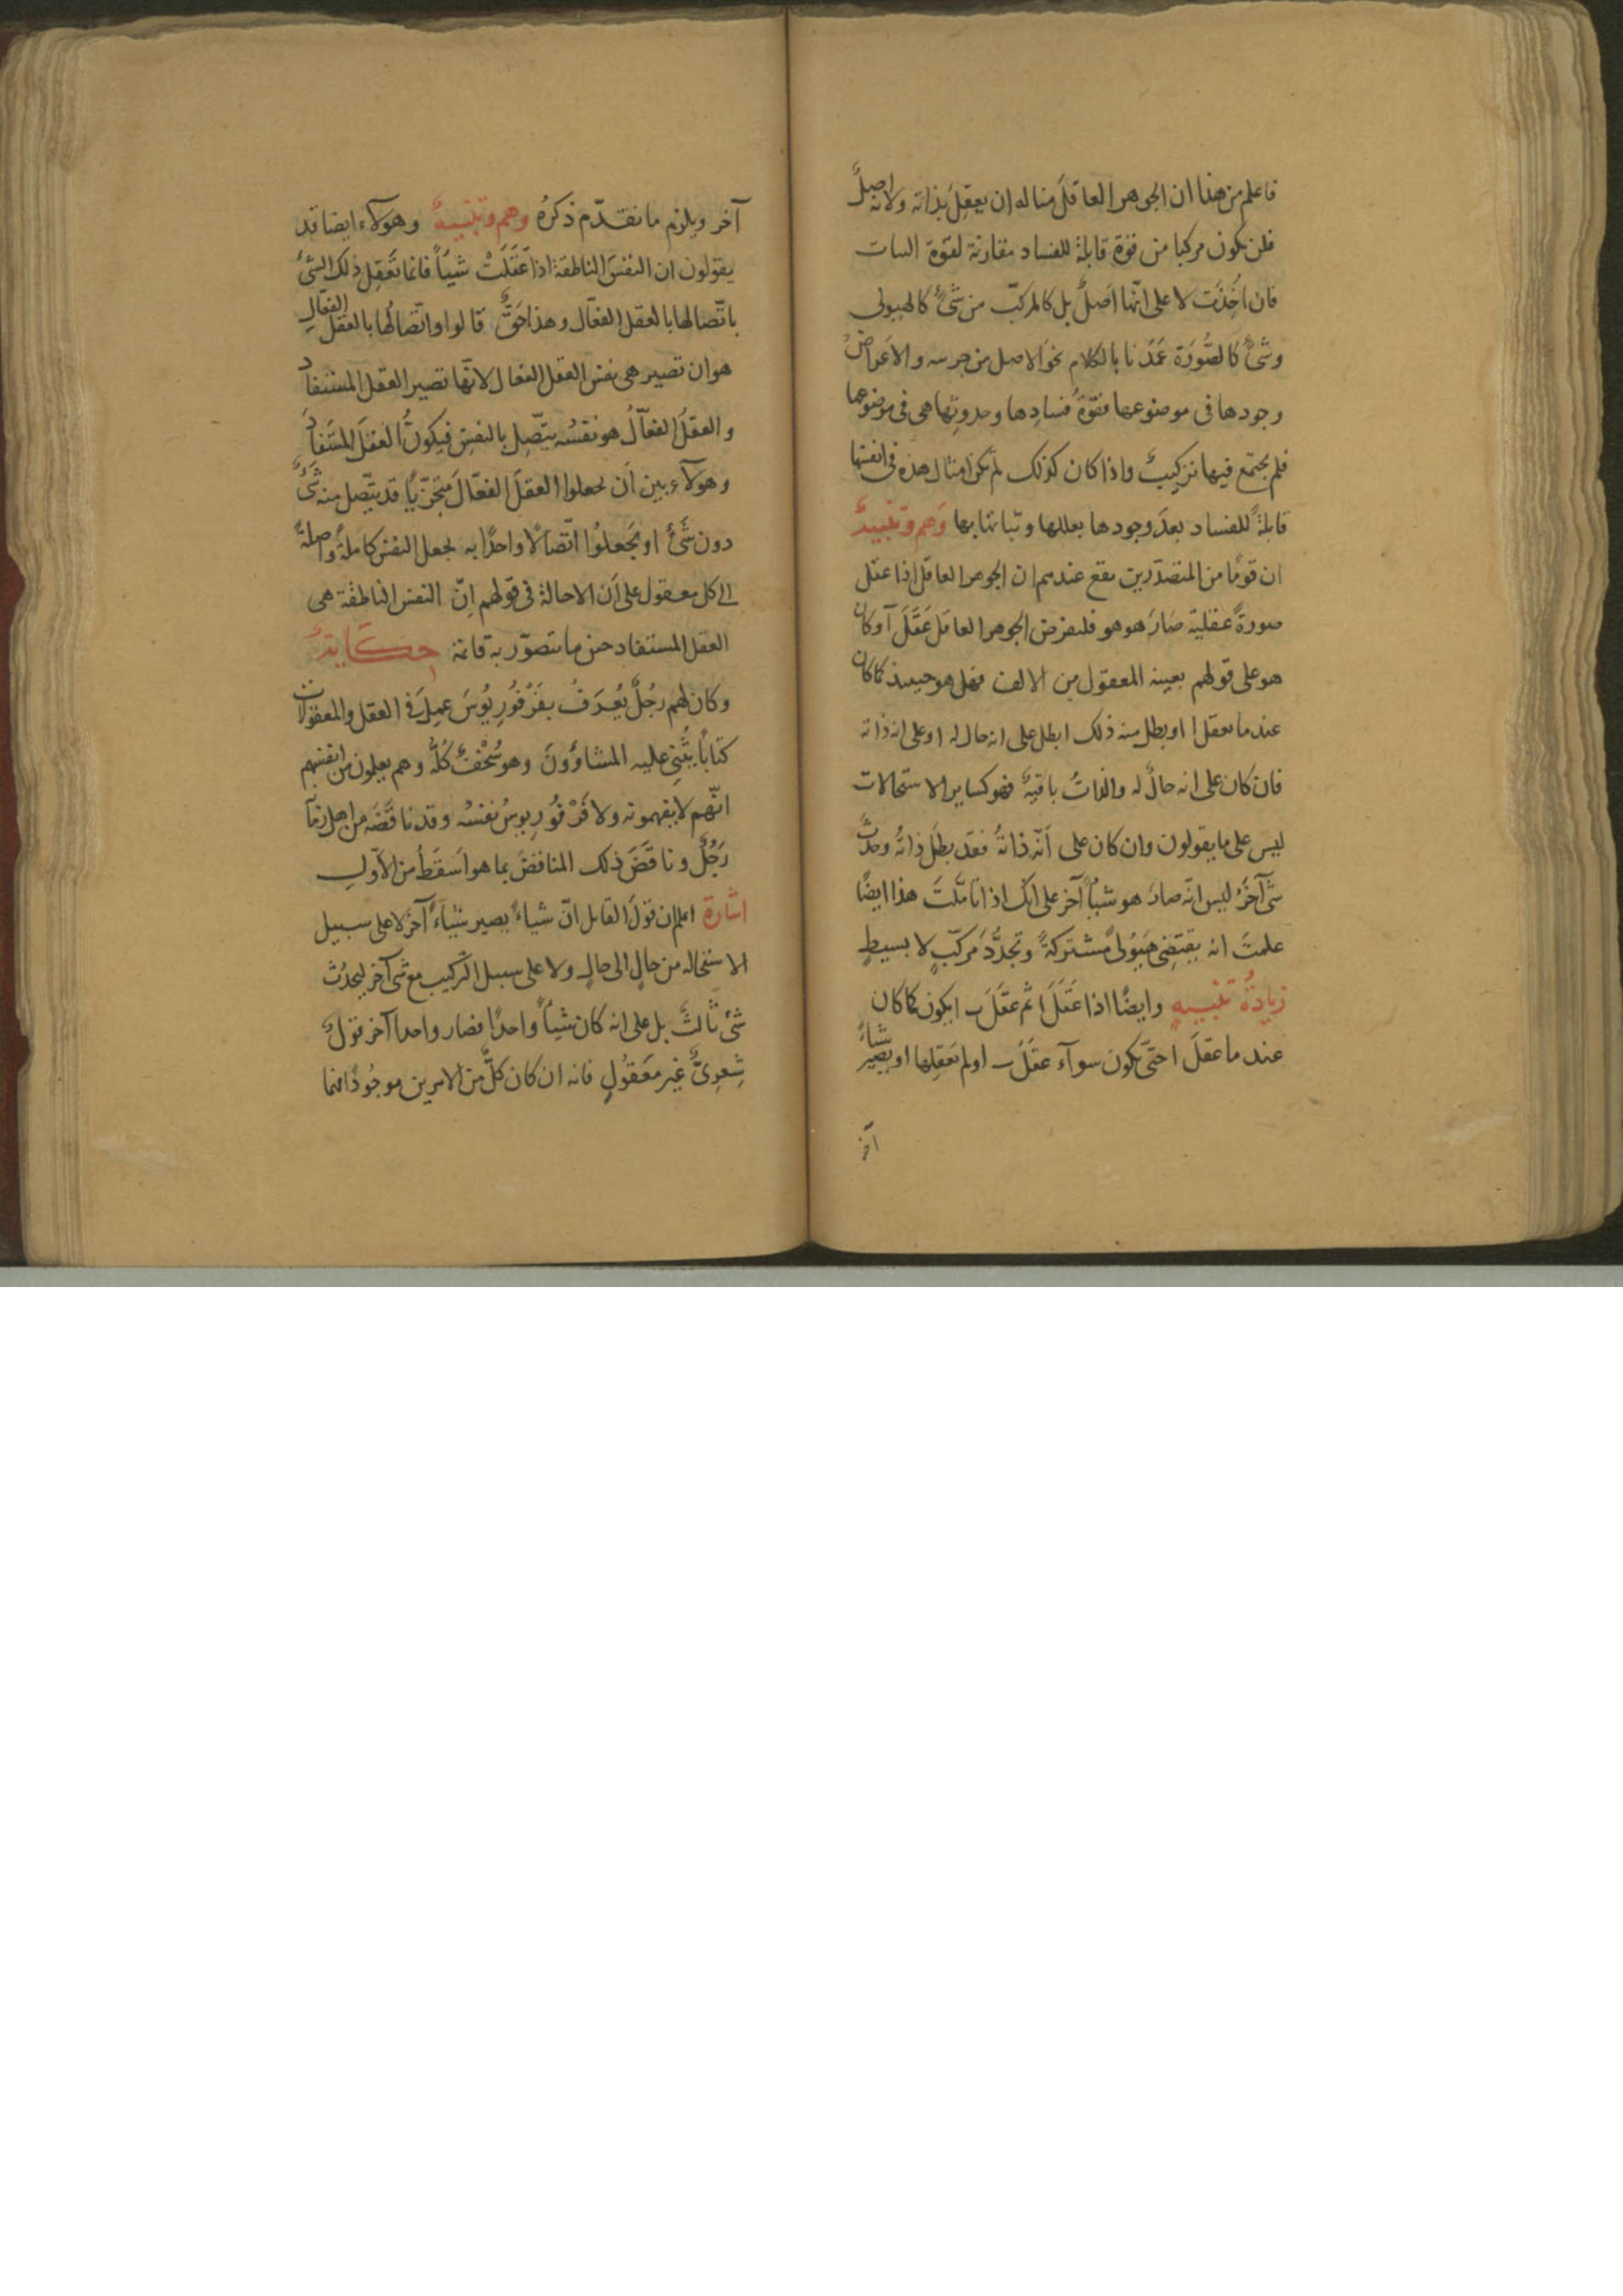 فاعلم من هذا ان الجوهر العاقلَ مناله ان يعقِلَ بذاته ولانه اصلٌ
فلن يكون مركبا من قوّة قابلة للفساد مقارنة لقوّة الثبات
فان اُخِذَت لا على انّها اَصلٌ بل كالمركبّ من شَىْءٍ كالهيولى
وشىءٍ كالصُّورَة عَمَدنا بالكلام نحوَ الاصل من جزئيه والاَعرَاضُ
وجودها فى موضوعها فقوّةُ فسادِها وحدوثِها هى فى موضوعها
فلم يجتمع فيها تركيبٌ واذا كان كذلك لم تكن امثال هذه فى انفسها
قابلةً للفساد بعدَ وجودها بعللها وثباتها بها وَهم وَتنبيهٌ
ان قومًا من المتصدّرين يقع عندهم ان الجوهر العاقل اذا عقل
صورةً عقليّة صَارَ هو هو فلنفرض الجوهر العاقل عَقَلَ آ وكان
هو على قولهم بعينه المعقول من الالف فهل هو حينئذ كما كان
عند ما لم يعقل ا او بطل منه ذلك ابطل على انه حال له او على انه ذاته
فان كان على انه حالٌ له والذاتُ باقيةٌ فهو كساير الاستحالات
ليس على ما يقولون وان كان على اَنّه ذاتهُ فقد بطَلَ ذاتُه وحدَثَ
شَىْ آخَرُ ليس انّه صارَ هو شيأً آخر على انّك اذا تأمّلتَ هذا ايضًا
علمتَ انه يقتضِى هَيُولىً مُشتركةً وتَجدُّدَ مركّبٍ لا بسيطٍ
زيادةُ تنبيهٍ وايضًا اذا عَقَلَ ا ثم عَقَلَ ب ايكون كما كان
عند ما عقَلَ ا حتّى يكون سوآء عقَلَ ب او لم يَعقِلها او يصير شياءً
آخر
آخر ويلزم ما تقدّم ذكرُه وهم وتنبيهٌ وهولآء ايضا قد
يقولون ان النفسَ الناطقة اذا عَقَلَتْ شيأً فانما تَعقِل ذلك الشىْءَ
باتّصالها بالعقل الفعّال وهذا حَقٌّ قالوا واتّصالُها بالعقل الفعّالِ
هو ان تصير هى نفس العقل الفعال لانّها تصير العقل المستفادَ
والعقلُ الفعّالُ هو نفسُه يتّصِل بالنفسِ فيكونُ العقلَ المستَفادَ
وهولآء بين اَن يجعلوا العقلَ الفعّالَ متجَزّيًا قد يتّصل منه شَىْءٌ
دون شَىْءٍ او يَجعلوُا اتّصالًا واحدًا به يجعل النفس كاملةً واصلةً
الى كل معقول على اَن الاحالة فى قولهم اِنّ النفس الناطقة هى
العقل المستفاد حين ما تتصوّر به قائمة حكَايَةٌ
وكان لهم رجُلٌ يُعرَفُ بفَرْفُورِيُوسَ عمِلَ فى العقل والمعقولات
كتابًا يُثْنِى عليه المشاؤُونَ وهو سُخْفٌ كُلُّه وهم يعلمون من انفسهم
انّهم لا يفهمونه ولا فَرْفُورِيوسُ نفسُه وقد ناقَضَه من اهل زمانه
رَجُلٌ وناقَضَ ذلك المناقضَ بما هو اَسقَطُ من الاَوّلِ
اشارة اعلم ان قولَ القايل انّ شياءً يصير شيَاءً آخَرَ لا على سبيل
الاستحاله من حالٍ الى حالٍ ولا على سبيل التّركيب مع شىء آخر ليحدُثَ
شىْ ثالثٌ بل على انه كان شيأً واحدًا فصار واحدا آخر قولٌ
شِعرِىٌّ غير معقُولٍ فانه ان كان كلٌّ من الامرين موجُودًا فهما